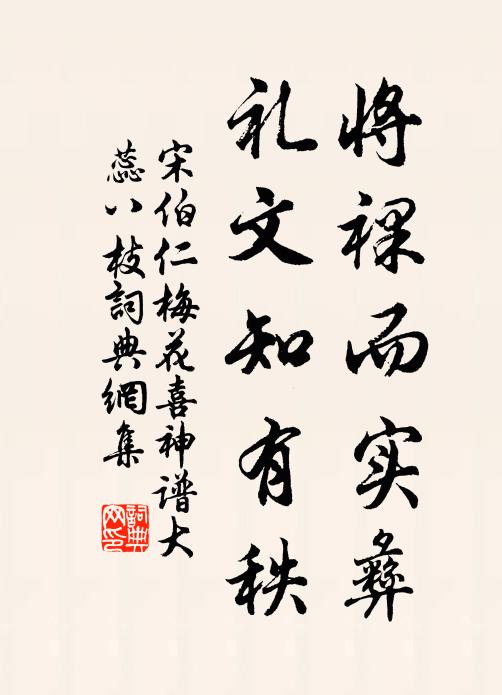 将祼而实彝
礼文知有秩
宋伯仁梅花喜神谱大
蕊八枝詞典網集
詞典
网印